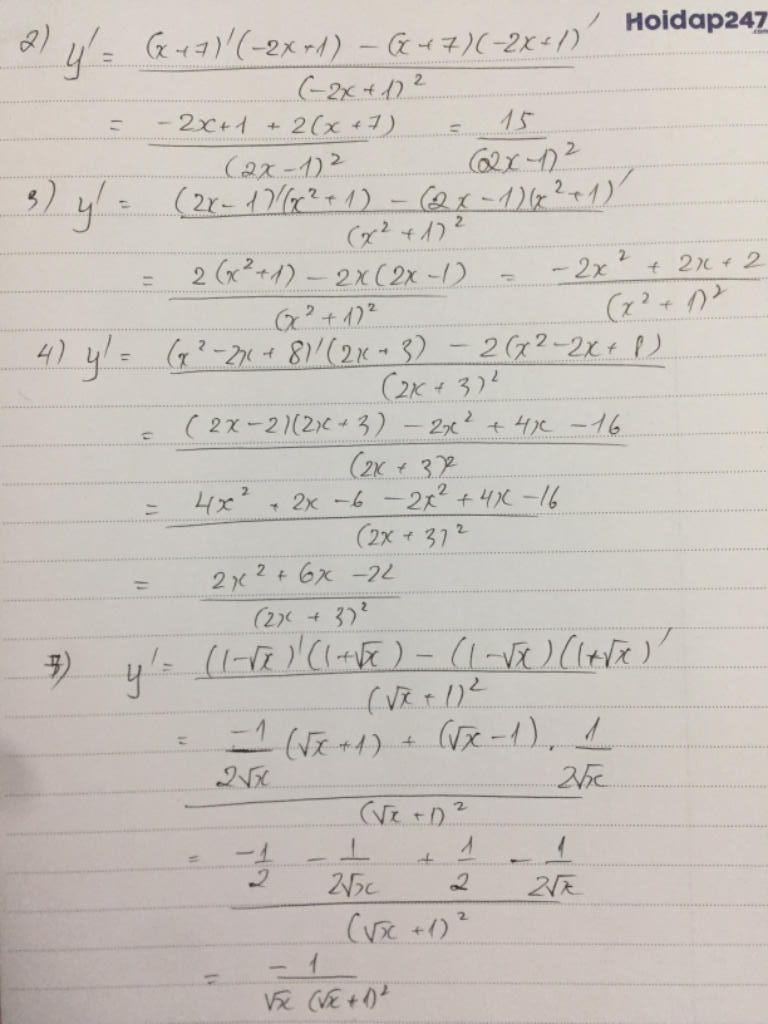 Hoidap247.com
2) y' = ((x+7)'(-2x+1) - (x+7)(-2x+1)') / (-2x+1)²
= (-2x+1 + 2(x+7)) / (2x-1)² = 15 / (2x-1)²
3) y' = ((2x-1)'(x²+1) - (2x-1)(x²+1)') / (x²+1)²
= (2(x²+1) - 2x(2x-1)) / (x²+1)² = (-2x² + 2x + 2) / (x²+1)²
4) y' = ((x²-2x+8)'(2x+3) - 2(x²-2x+8)) / (2x+3)²
= ((2x-2)(2x+3) - 2x² + 4x - 16) / (2x+3)²
= (4x² + 2x - 6 - 2x² + 4x - 16) / (2x+3)²
= (2x² + 6x - 22) / (2x+3)²
7) y' = ((1-√x)'(1+√x) - (1-√x)(1+√x)') / (√x+1)²
= (-1/(2√x) (√x+1) + (√x-1) . 1/(2√x)) / (√x+1)²
= (-1/2 - 1/(2√x) + 1/2 - 1/(2√x)) / (√x+1)²
= -1 / (√x (√x+1)²)